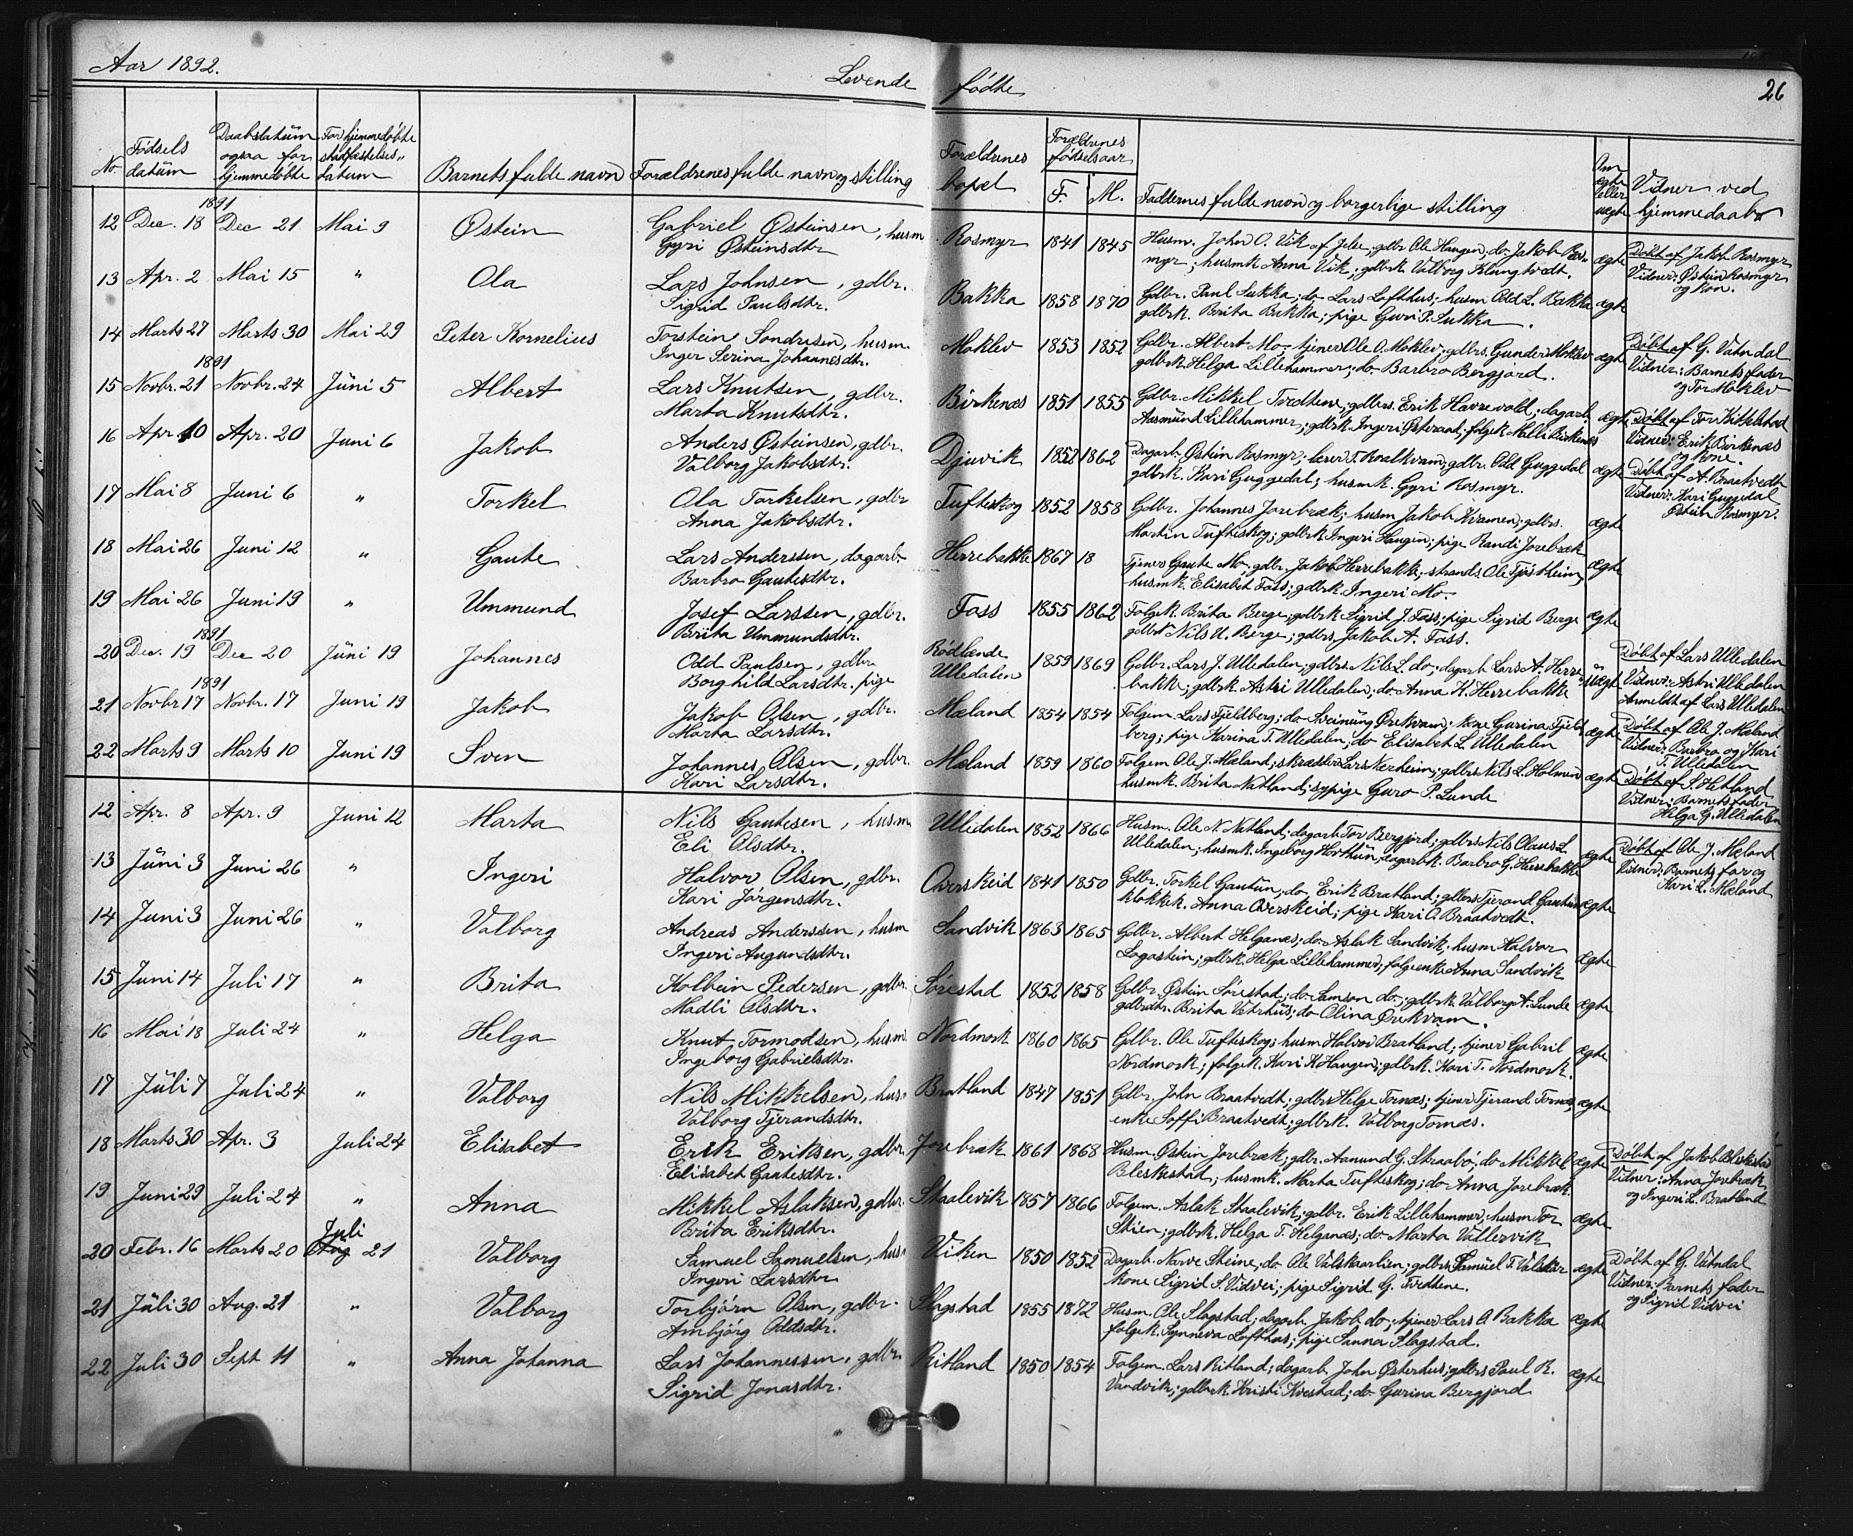 Aar 1892.
Levende fødte
26
No.
Fødsels datum
Daabsdatum ogsaa for hjemmedøbte
For hjemmedøbte stadfæstelses datum
Barnets fulde navn
Forældrenes fulde navn og stilling
Forældrenes bopæl
Forældrenes fødselsaar
F. M.
Faddernes fulde navn og borgerlige stilling
Om ægte eller uægte
Vidner ved hjemmedaab
1891
12 Dec. 18 Dec 21 Mai 9 Østein Gabriel Østeinsen, husm Rosmyr 1841 1845 Husm. John O. Vik af Jelse; gdbr Ole Haugen; do Jakob Ros- ægte Døbt af Jakob Rosmyr
Gyri Østeinsdtr myr; husmk Anna Vik; gdbrk Valborg Klungtvedt. Vidner: Østein Rosmyr
og kon.
13 Apr. 2 Mai 15 " Ola Lars Johnsen, gdbr. Bakka 1858 1870 Gdbr. Paul Sukka; do Lars Lofthus; husm Odd L. Bakka ægte
Sigrid Paulsdtr. gdbrk. Brita Bakka; pige Guri P. Sukka.
14 Marts 27 Marts 30 Mai 29 Peter Kornelius Torstein Sondresen, husm. Moklev 1853 1852 Gdbr. Albert Mo; tjener Ole O. Moklev; gdbrs. Gunder Moklev ægte Døbt af G. Vatndal
Inger Serina Johannesdtr. gdbrk Helga Lillehammer; do Barbro Bergjord. Vidner: Barnets fader
og Tor Moklev
1891
15 Novbr. 21 Novbr. 24 Juni 5 Albert Lars Knutsen, gdbr. Birkenæs 1851 1855 Gdbr. Mikkel Tvedtene; gdbrs. Erik Havrevold; dagarb. ægte Døbt af Tor Kittelstad
Marta Knutsdtr. Aasmund Lillehammer; gdbrk Ingeri Østeraad; folgek Malli Birkenæs Vidner: Erik Birkenæs
og kone.
16 Apr. 10 Apr. 20 Juni 6 Jakob Anders Østeinsen, gdbr. Djuvik 1852 1862 Dagarb. Østein Rosmyr; lærer T. Kvalkvam; gdbr. Odd Guggedal ægte Døbt af A. Braatvedt
Valborg Jakobsdtr. gdbrk. Kari Guggedal; husmk. Gyri Rosmyr. Vidner: Kari Guggedal
Østein Rosmyr.
17 Mai 8 Juni 6 " Torkel Ola Torkelsen, gdbr Tufteskog 1852 1858 Gdbr. Johannes Jorebræk; husm Jakob Kvamen; gdbrs. ægte
Anna Jakobsdtr. Martin Tufteskog; gdbrk Ingeri Haugen; pige Randi Jorebræk
18 Mai 26 Juni 12 " Gaute Lars Anderssen, dagarb. Herrebakke 1867 18 Tjener Gaute Mo; gdbr. Jakob Herrebakke; strands. Ole Tjostheim ægte
Barbro Gautesdtr. husmk. Elisabet Foss; gdbrk Ingeri Mo.
19 Mai 26 Juni 19 " Ummund Josef Larssen, gdbr. Foss 1855 1862 Folgek. Brita Berge; gdbrk Sigrid J. Foss; pige Sigrid Berge ægte
Brita Ummundsdtr. gdbr Nils U. Berge; gdbrs. Jakob A. Foss.
1891
20 Dec. 19 Dec 20 Juni 19 Johannes Odd Paulsen, gdbr Rødlænde 1859 1869 Gdbr. Lars J. Ulledalen; gdbrs. Nils L. do; dagarb Lars A. Herre- uægte Døbt af Lars Ulledalen
Borghild Larsdtr. pige Ulledalen bakk; gdbrk Astri Ulledalen; do Anna K. Herrebakke Vidner: Astri Ulledalen
Anmeldt af Lars Ulledalen
1891
21 Novbr 17 Novbr. 17 Juni 19 Jakob Jakob Olsen, gdbr. Mæland 1854 1854 Folgem. Lars Fjeldberg; do Sveinung Ørekvam; kone Gurina Fjeld- ægte Døbt af Ole J. Mæland
Marta Larsdtr. berg; pige Karina T. Ulledalen; do Elisabet L. Ulledalen Vidner: Barbro og Kari
T. Ulledalen
22 Marts 9 Marts 10 Juni 19 Sven Johannes Olsen, gdbr. Mæland 1859 1860 Folgem Ole J. Mæland; skrædder Lars Nerheim; gdbrs Nils L. Holmen ægte Døbt af S. Hetland
Kari Larsdtr. husmk. Brita Natland; sypige Guro P. Lunde Vidner: Barnets fader
Helga G. Ulledalen
12 Apr. 8 Apr. 9 Juni 12 Marta Nils Gautesen, husm Ulledalen 1852 1866 Husm. Ole N. Natland; dagarb Tor Bergjord; gdbrs Nils Olaus L. ægte Døbt af Ole J. Mæland
Eli Olsdtr. Ulledalen; husmk. Ingeborg Horthun; dagarbk. Barbro G. Herrebakke Vidner: Barnets far og
Kari L. Mæland
13 Juni 3 Juni 26 " Ingeri Halvor Olsen, gdbr. Overskeid 1841 1850 Gdbr. Torkel Gautun; do Erik Bratland; gdbrs Tjerand Gautun ægte
Kari Jørgensdtr. klokkk. Anna Overskeid; pige Kari O. Braatvedt.
14 Juni 3 Juni 26 " Valborg Andreas Anderssen, husm Sandvik 1863 1865 Gdbr. Albert Helganæs; do. Aslak Sandvik; husm Halvor ægte
Ingeri Augundsdtr. Logastein; gdbrk. Helga Lillehammer; folgeenke Anna Sandvik
15 Juni 14 Juli 17 " Brita Kolbein Pedersen, gdbr Sørestad 1852 1858 Gdbr. Østein Sørestad; do Samson do; gdbrk Valborg A. Lunde ægte
Madli Olsdtr. gdbrdtr. Brita Vetrhus; do Olina Ørekvam.
16 Mai 18 Juli 24 " Helga Knut Tormodsen, husm Nordmork 1860 1865 Gdbr. Ole Tufteskog; husm Halvor Bratland; tjener Gabriel ægte
Ingeborg Gabrielsdtr. Nordmork; folgek. Kari K Haugen; gdbrk. Kari T. Nordmork.
17 Juli 7 Juli 24 " Valborg Nils Mikkelsen, hus Bratland 1847 1851 Gdbr. John Braatvedt; gdbrs Helge Tornæs; tjener Tjerand Tornæs ægte
Valborg Tjerandsdtr. enke Soffi Braatvedt; gdbrk. Valborg Tornæs.
18 Marts 30 Apr. 3 Juli 24 Elisabet Erik Eriksen, gdbr Jorebræk 1861 1868 Husm. Østein Jorebræk; gdbr. Aanund G. Straabø; do Mikkel ægte Døbt af Jakob Bleskestad
Elisabet Gautesdtr. Bleskestad; husmk. Marta Tufteskog; do Anna Jorebræk Vidner: Anna Jorebræk
og Ingeri L. Bratland
19 Juni 29 Juli 24 " Anna Mikkel Aslaksen, gdbr. Staalevik 1857 1866 Folgem. Aslak Staalevik; gdbr. Erik Lillehammer; husm Tor ægte
Brita Eriksdtr. Stien; gdbrk. Helga T. Helganæs; do Marta Vallervik
Juli
20 Febr. 16 Marts 20 Aug 21 Valborg Samuel Samuelsen, hus Viken 1850 1852 Dagarb. Narve Steine; do Ole Valskaarlien; gdbrs Samuel T. Valskar ægte Døbt af G. Vatndal
Ingeri Larsdtr kone Sigrid S. Vidvei; pige Sigrid G. Tvedtene. Vidner: Barnets fader
og Sigrid Vidvei
21 Juli 30 Aug. 21 " Valborg Torbjørn Olsen, gdbr. Slagstad 1855 1872 Husm. Ole Slagstad; dagarb Jakob do; tjener Lars O. Bakka ægte
Ambjørg Oddsdtr. folgek. Synneva Lofthus; pige Sanna Slagstad.
22 Juli 30 Sept 11 " Anna Johanna Lars Johannessen, gdbr Ritland 1850 1854 Folgem. Lars Ritland; dagarb John Østerhus; gdbrs Paul R. ægte
Sigrid Jonasdtr. Vandvik; gdbrk Kristi Kvestad; do Gurina Bergjord